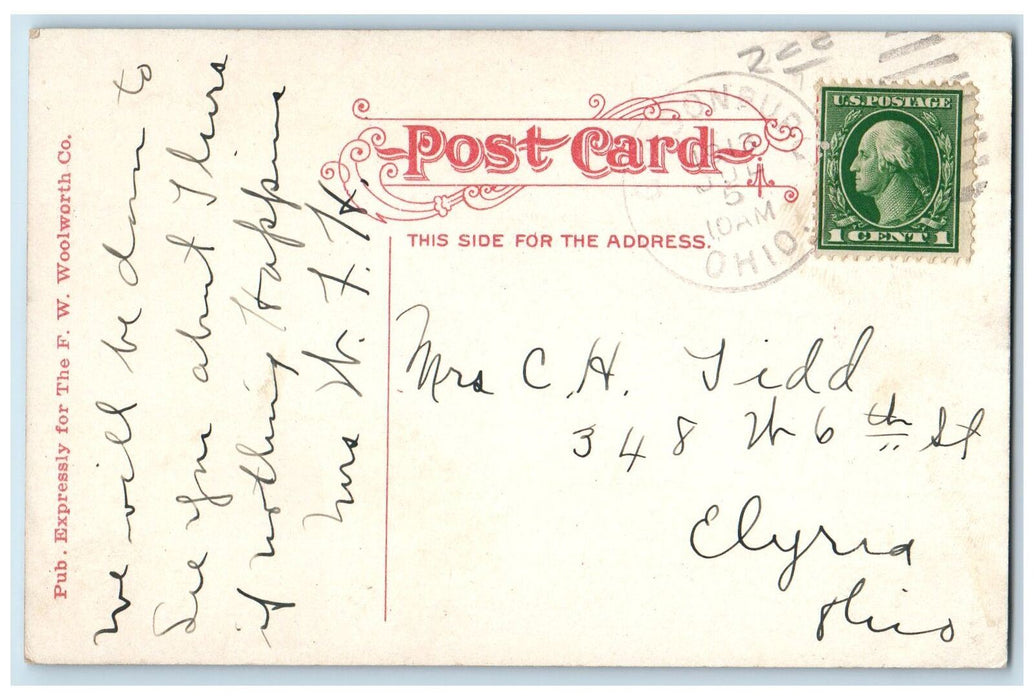 Pub. Expressly for The F. W. Woolworth Co.
we will be down to
See you about Thurs
if nothing Happens
Mrs W. F. H.
Post Card
THIS SIDE FOR THE ADDRESS.
2cc
JUL
5
10AM
OHIO.
U.S. POSTAGE
1 CENT 1
Mrs C. H. Tidd
348 W 6th St
Elyria
Ohio